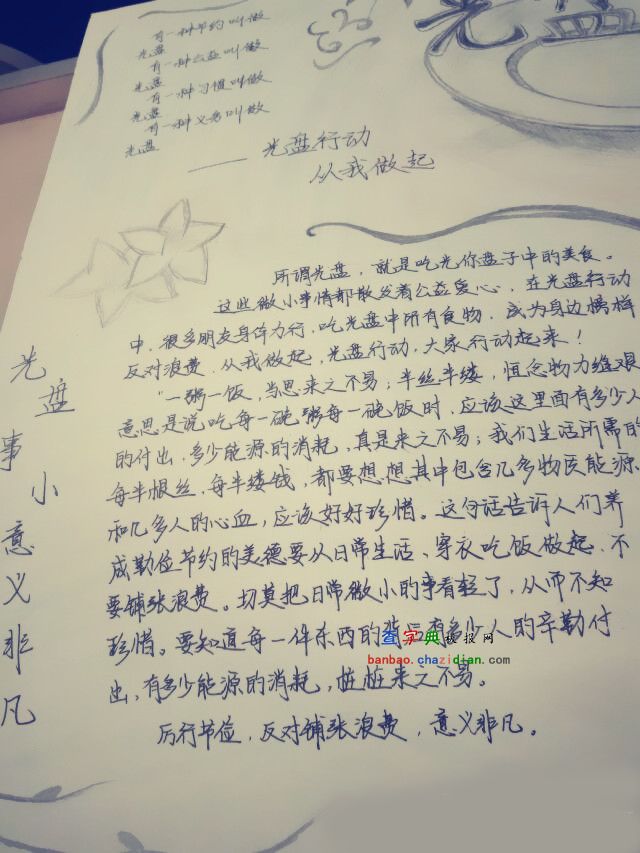 有一种节约叫做
光盘
有一种公益叫做
光盘
有一种习惯叫做
光盘
有一种义务叫做
光盘
光盘
——光盘行动
从我做起
所谓光盘，就是吃光你盘子中的美食。
这些微小事情都散发着公益爱心，在光盘行动
中，很多朋友身体力行，吃光盘中所有食物，成为身边榜样
反对浪费，从我做起，光盘行动，大家行动起来！
“一粥一饭，当思来之不易；半丝半缕，恒念物力维艰
意思是说吃每一碗粥每一碗饭时，应该这里面有多少人
的付出，多少能源的消耗，真是来之不易；我们生活所需的
每半根丝，每半缕钱，都要想想其中包含几多物医能源、
和几多人的心血，应该好好珍惜。这句话告诉人们养
成勤俭节约的美德要从日常生活、穿衣吃饭做起，不
要铺张浪费。切莫把日常微小的事看轻了，从而不知
珍惜。要知道每一件东西的背后有多少人的辛勤付
出，有多少能源的消耗，桩桩来之不易。
厉行节俭，反对铺张浪费，意义非凡。
光盘事小意义非凡
查字典板报网
banbao.chazidian.com